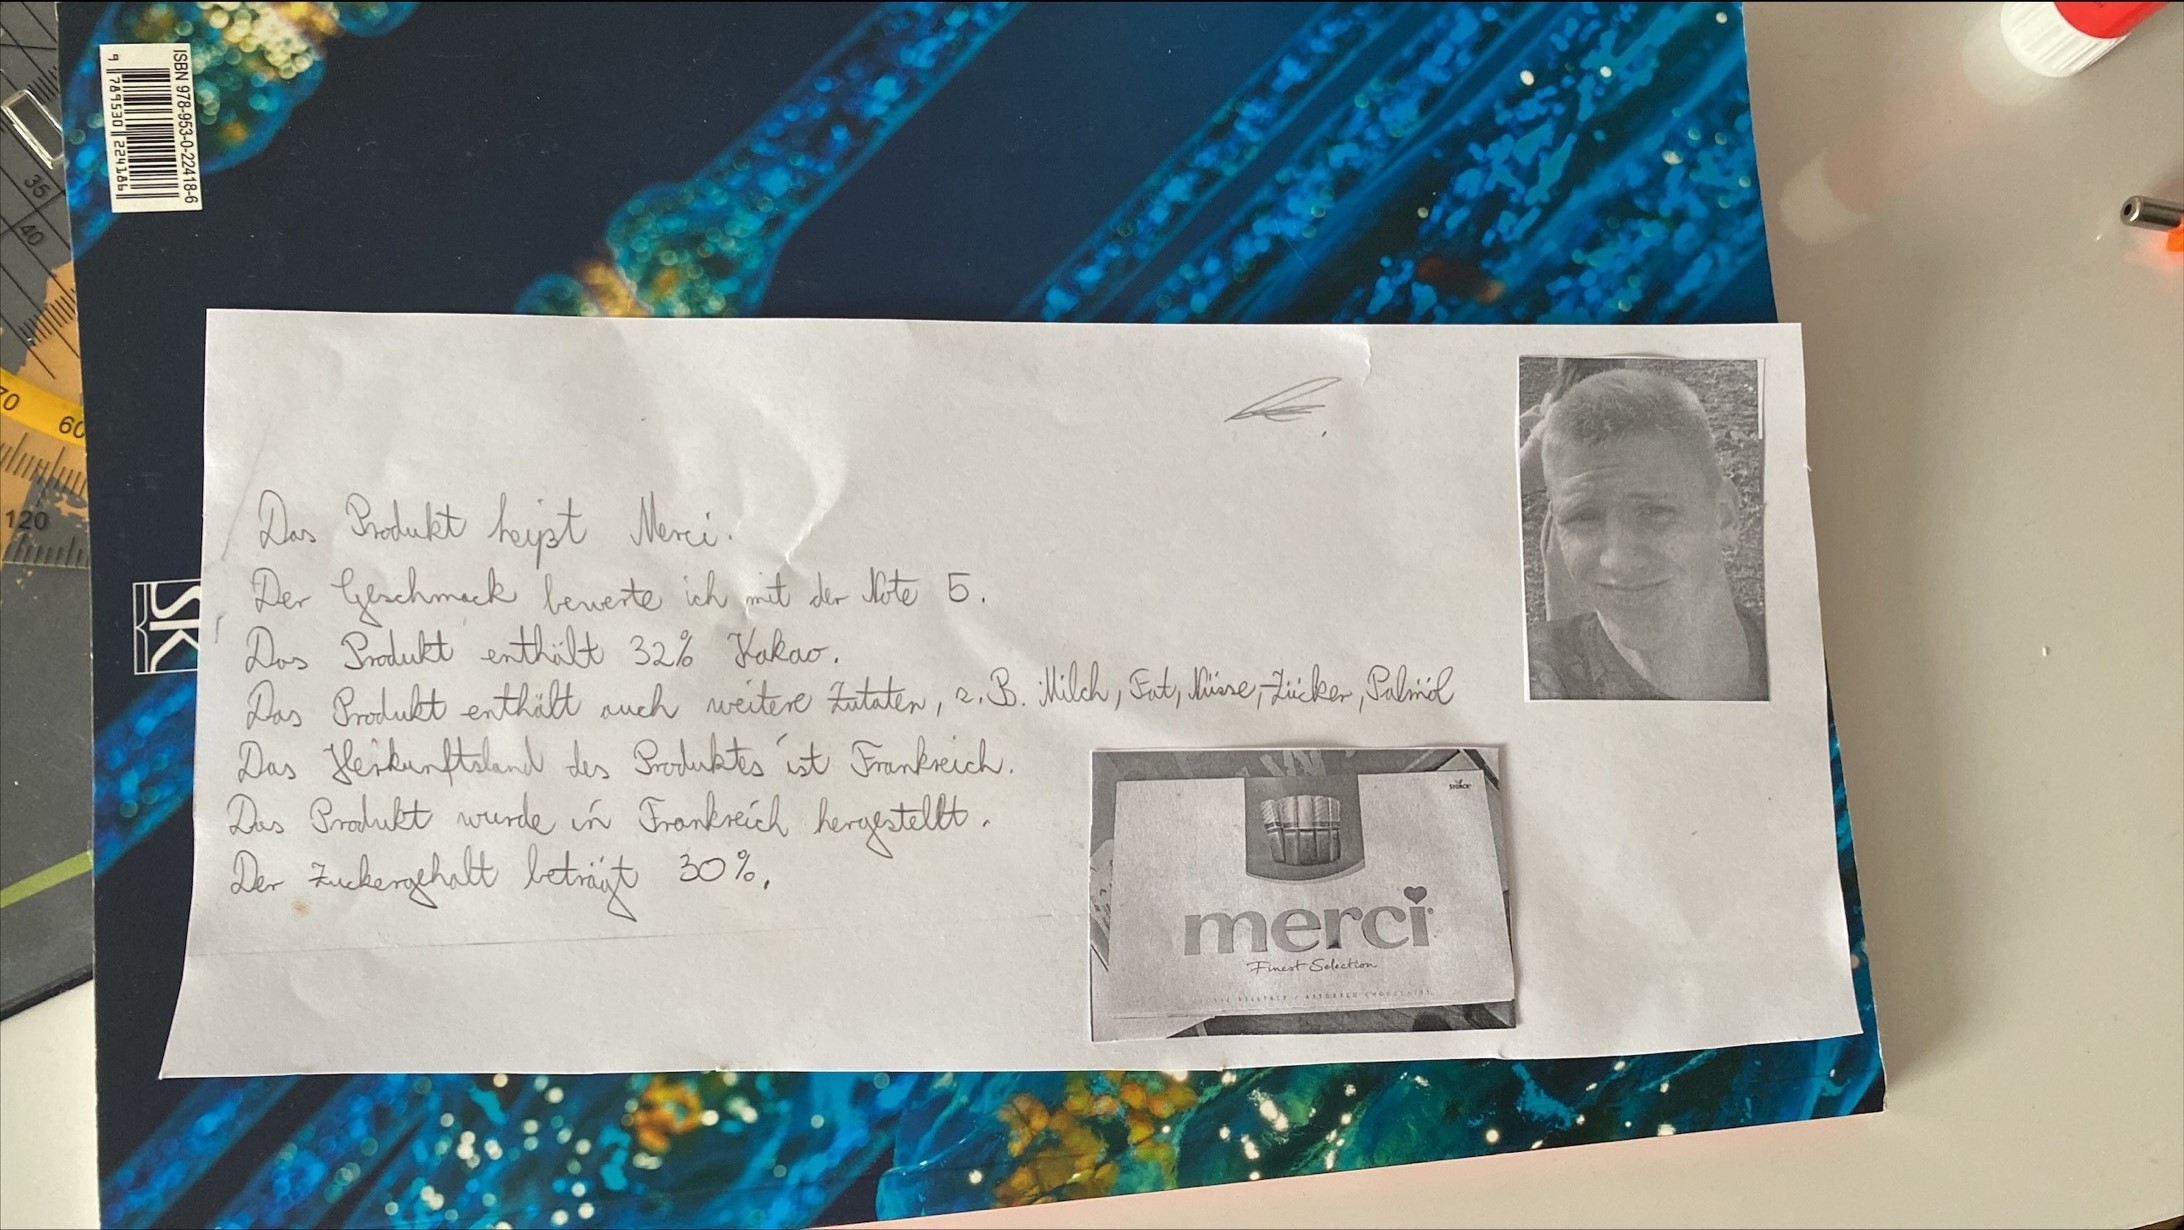 ISBN 978-953-0-22418-6
9 789530 224186
35
40
70
60
120
SK
Das Produkt heißt Merci.
Der Geschmack bewerte ich mit der Note 5.
Das Produkt enthält 32% Kakao.
Das Produkt enthält auch weitere Zutaten, z.B. Milch, Fat, Nüsse, Zücker, Palmöl
Das Herkunftsland des Produktes ist Frankreich.
Das Produkt wurde in Frankreich hergestellt.
Der Zuckergehalt beträgt 30%.
STORCK
merci
Finest Selection